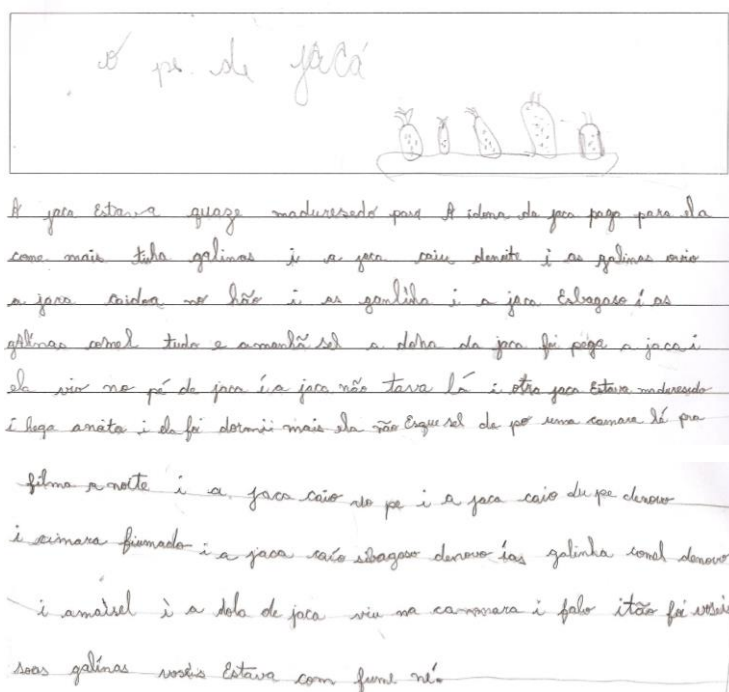 o pe de jacá
A jaca Estava quaze maduresedo para A idona da jaca pega para ela
come mais tiha galinas i a jaca caiu denoite i as galinas ovio
a jaca caidoa no hão i as ganliha i a jaca Esbagaso i as
galinas comel tudo e amanhã sel a dona da jaca foi pega a jaca i
ela vio no pé de jaca i a jaca não tava lá i otra jaca Estava maduresedo
i hega anoita i ela foi dormii mais ela não Esque sel de po uma camara lá pra
filma a noite i a jaca caio do pe i a jaca caio du pe denovo
i cimara fiumado i a jaca caio sibagaso denovo ias galinha comel denovo
i amaisel i a dola de jaca viu na cammara i falo itão foi voseis
soas galinas voseis Estava com fume né.